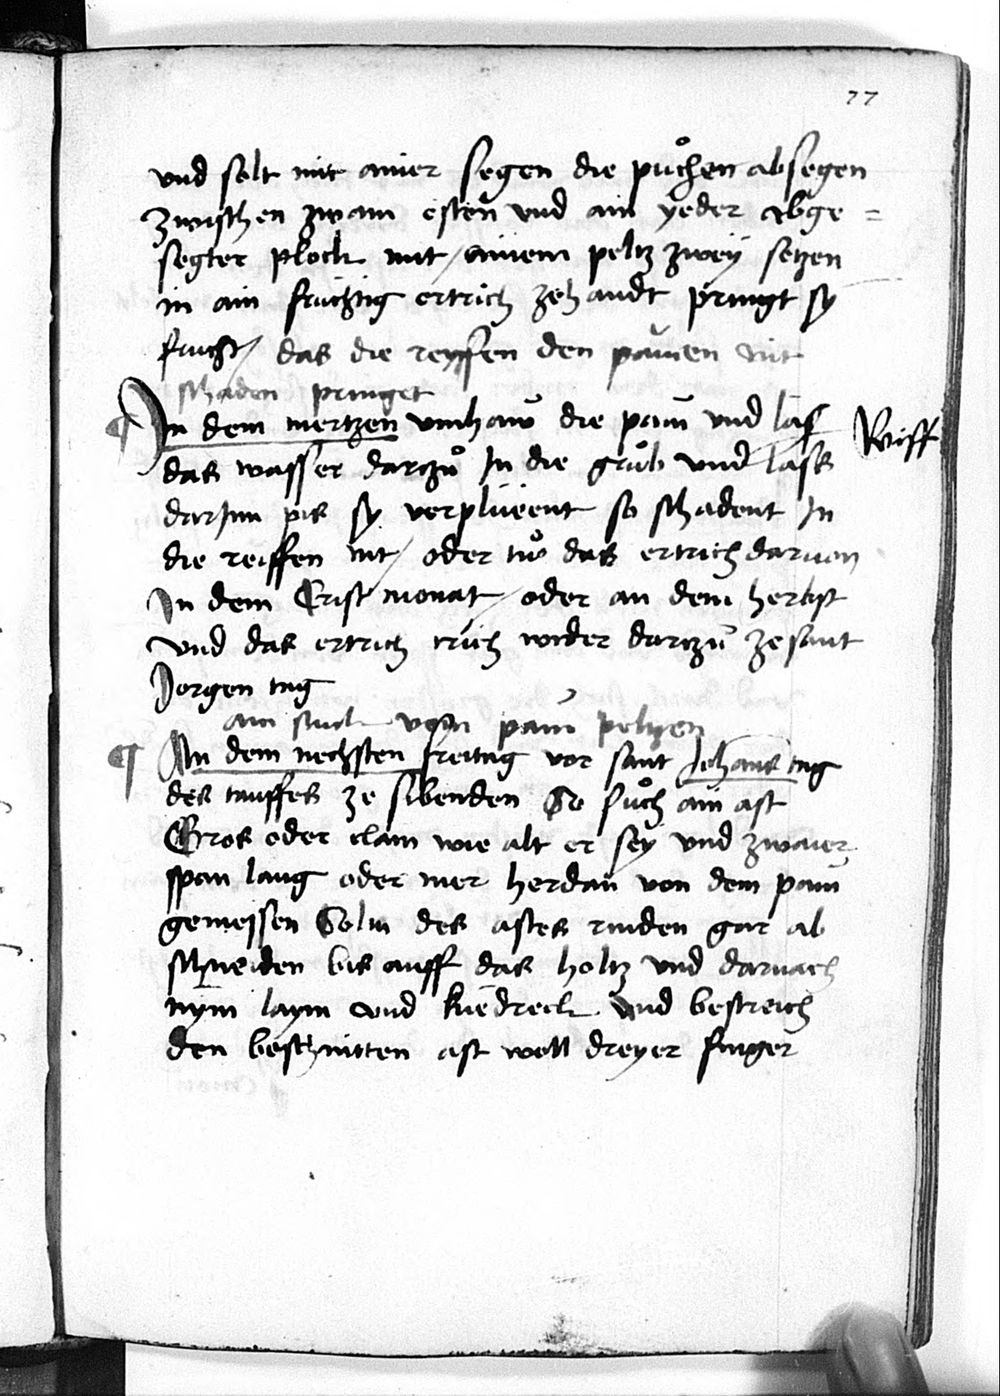 77
vnd solt mit ainer segen die puͦchen absegen
zwischen zwain esten vnd ain yeder abge =
segter plock mit / ainem peltz zweÿ setzen
in ain fruchtig ertrich zehandt pringt sy
frucht / das die reyffen den paumen nit
schaden pringet
¶ In dem mertzen vmhaw die paum vnd las
Reiff
das wasser darczuͦ In die gruͦb vnd lass
darJnn pis sy verplüeent so schadent In
die reiffen nit / oder tuͦ das ertrich daruon
In dem Crist monat / oder an dem herbst
vnd das ertrich trich wider darczu ze sant
Jorgen tag
ain stuck vom paum peltzen
¶ An dem nechsten freitag vor sant Johans tag
des tauffes ze sibenden So suͦch ain ast
Gros oder clain wie alt er sey vnd zwaier
span lang oder mer herdan von dem paum
gemessen Soltu des astes rinden gar ab
schneiden bis auff das holtz vnd darnach
nÿm laym vnd küedreck vnd bestreich
den beschnitten ast woll dreyer finger